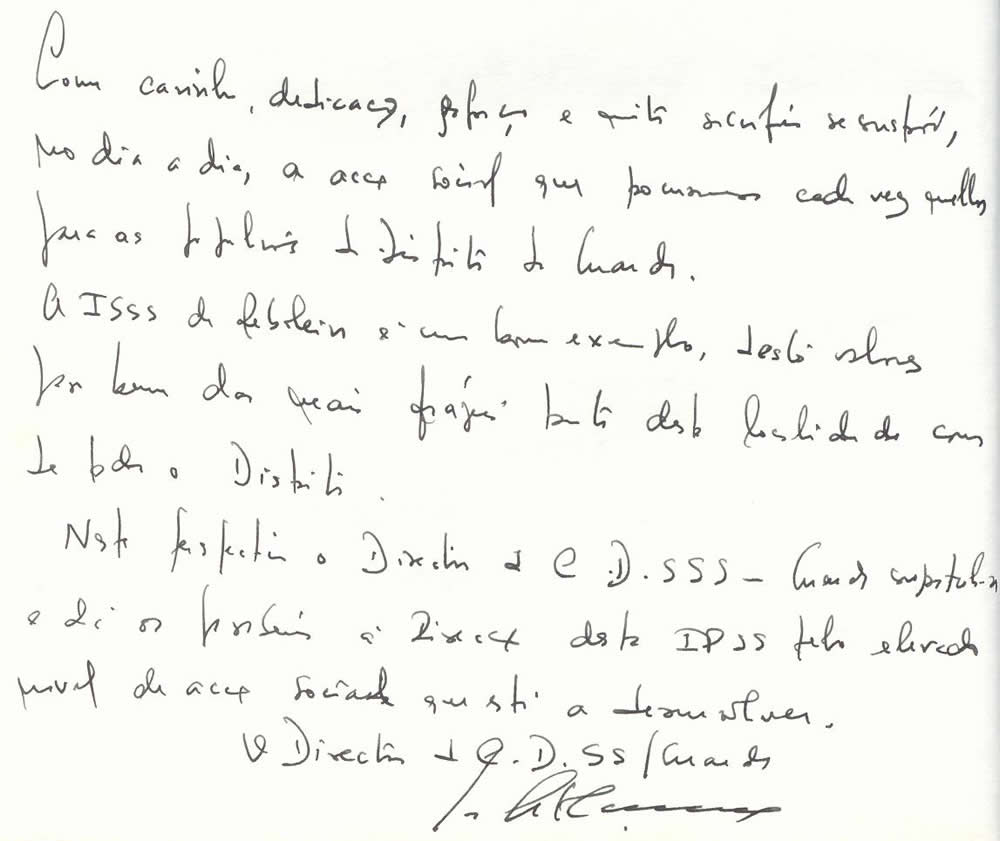 Com carinho, dedicação, esforço e muito sacrifício se constrói,
no dia a dia, a acção social que cada vez
para as populações do Distrito da Guarda.
A ISSS de é um bom exemplo, desta
por bem dos mais frágeis tanto desta localidade como
de todo o Distrito.
Nesta perspectiva o Director do C.D.SSS - Guarda
e dá os parabéns à Direcção desta IPSS pelo elevado
nível de acção social que está a desenvolver.
O Director do C.D.SS/Guarda